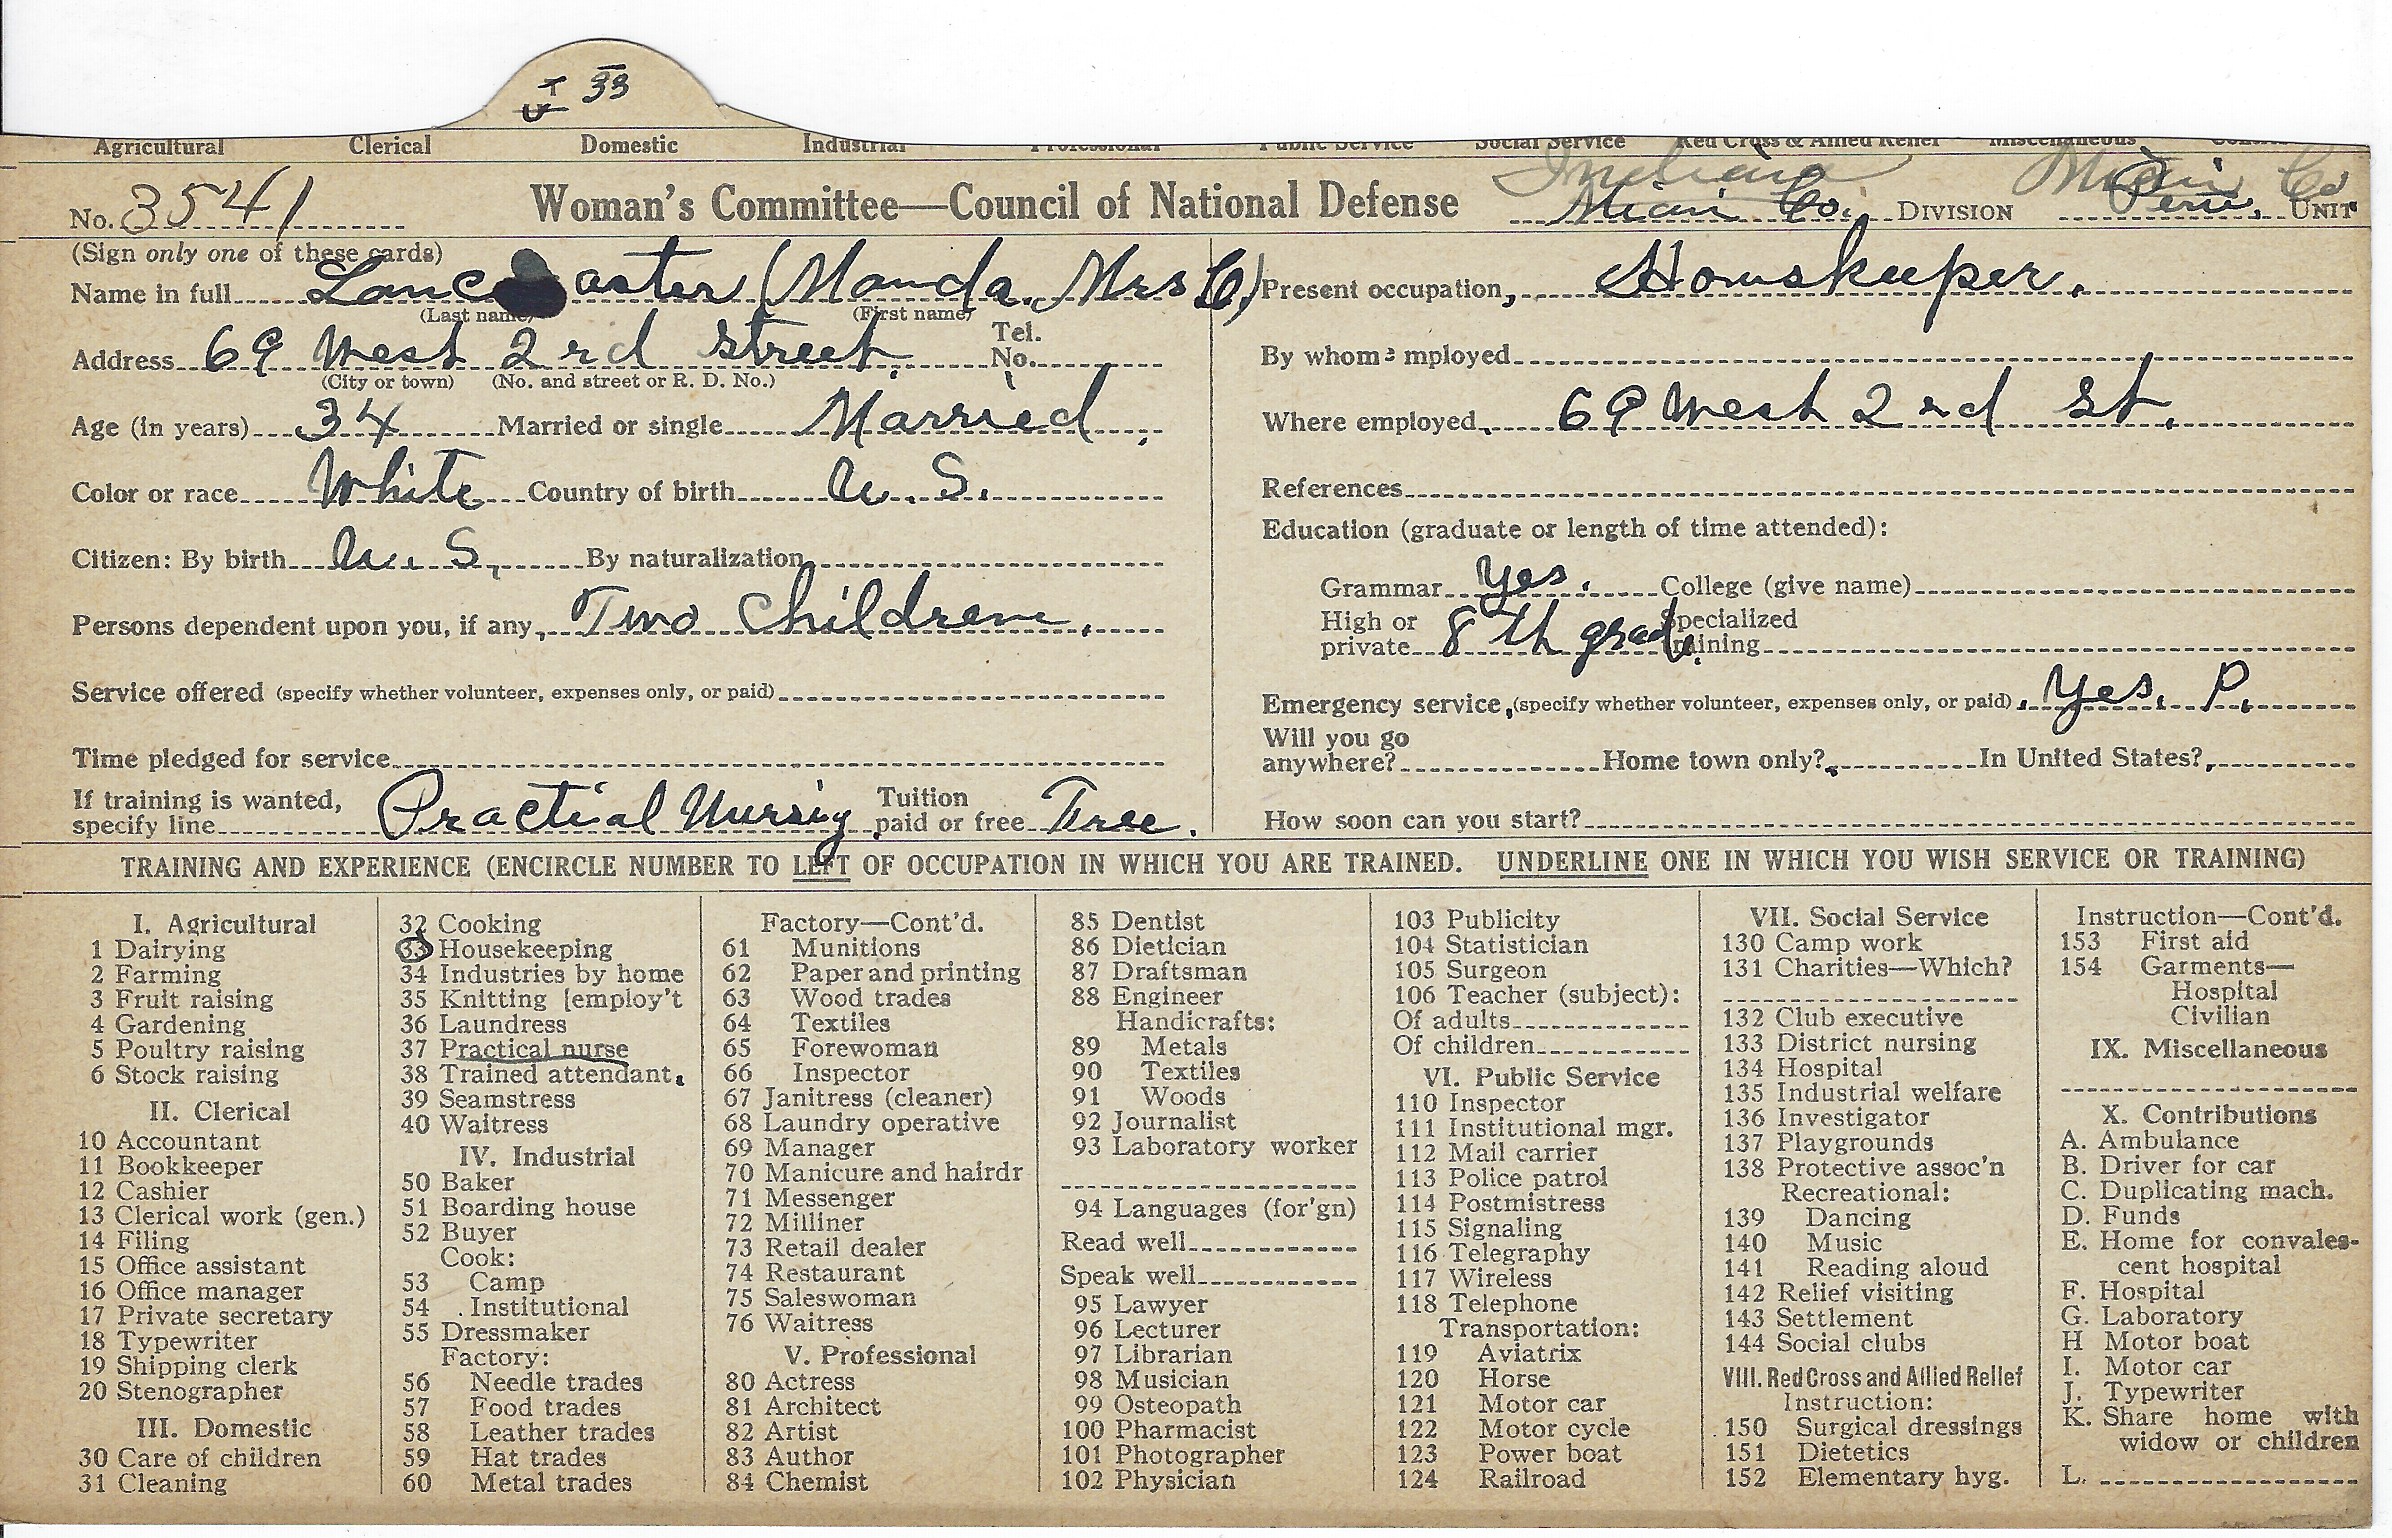 33
Agricultural Clerical Domestic Industrial Professional Public Service Social Service Red Cross & Allied Relief Miscellaneous
Indiana Miami Co
No. 3541 Woman's Committee—Council of National Defense Miami Co. DIVISION Peru, UNIT
(Sign only one of these cards)
Name in full Lancaster (Manda. Mrs C) Present occupation, Howskeeper.
(Last name) (First name)
Address 69 West 2rd Street. Tel. No. By whom employed
(City or town) (No. and street or R. D. No.)
Age (in years) 34 Married or single Married, Where employed, 69 West 2rd St,
Color or race White Country of birth U. S. References
Education (graduate or length of time attended):
Citizen: By birth U. S, By naturalization
Grammar Yes. College (give name)
Persons dependent upon you, if any, Two Childrem, High or private 8th grade. Specialized training
Service offered (specify whether volunteer, expenses only, or paid) Emergency service, (specify whether volunteer, expenses only, or paid) Yes. P.
Time pledged for service Will you go anywhere? Home town only? In United States?
If training is wanted, specify line Practial Nursig Tuition paid or free Free. How soon can you start?
TRAINING AND EXPERIENCE (ENCIRCLE NUMBER TO LEFT OF OCCUPATION IN WHICH YOU ARE TRAINED. UNDERLINE ONE IN WHICH YOU WISH SERVICE OR TRAINING)
I. Agricultural
1 Dairying
2 Farming
3 Fruit raising
4 Gardening
5 Poultry raising
6 Stock raising
II. Clerical
10 Accountant
11 Bookkeeper
12 Cashier
13 Clerical work (gen.)
14 Filing
15 Office assistant
16 Office manager
17 Private secretary
18 Typewriter
19 Shipping clerk
20 Stenographer
III. Domestic
30 Care of children
31 Cleaning
32 Cooking
33 Housekeeping
34 Industries by home
35 Knitting [employ't
36 Laundress
37 Practical nurse
38 Trained attendant
39 Seamstress
40 Waitress
IV. Industrial
50 Baker
51 Boarding house
52 Buyer
Cook:
53 Camp
54 Institutional
55 Dressmaker
Factory:
56 Needle trades
57 Food trades
58 Leather trades
59 Hat trades
60 Metal trades
Factory—Cont'd.
61 Munitions
62 Paper and printing
63 Wood trades
64 Textiles
65 Forewoman
66 Inspector
67 Janitress (cleaner)
68 Laundry operative
69 Manager
70 Manicure and hairdr
71 Messenger
72 Milliner
73 Retail dealer
74 Restaurant
75 Saleswoman
76 Waitress
V. Professional
80 Actress
81 Architect
82 Artist
83 Author
84 Chemist
85 Dentist
86 Dietician
87 Draftsman
88 Engineer
Handicrafts:
89 Metals
90 Textiles
91 Woods
92 Journalist
93 Laboratory worker
94 Languages (for'gn)
Read well
Speak well
95 Lawyer
96 Lecturer
97 Librarian
98 Musician
99 Osteopath
100 Pharmacist
101 Photographer
102 Physician
103 Publicity
104 Statistician
105 Surgeon
106 Teacher (subject):
Of adults
Of children
VI. Public Service
110 Inspector
111 Institutional mgr.
112 Mail carrier
113 Police patrol
114 Postmistress
115 Signaling
116 Telegraphy
117 Wireless
118 Telephone
Transportation:
119 Aviatrix
120 Horse
121 Motor car
122 Motor cycle
123 Power boat
124 Railroad
VII. Social Service
130 Camp work
131 Charities—Which?
132 Club executive
133 District nursing
134 Hospital
135 Industrial welfare
136 Investigator
137 Playgrounds
138 Protective assoc'n
Recreational:
139 Dancing
140 Music
141 Reading aloud
142 Relief visiting
143 Settlement
144 Social clubs
VIII. Red Cross and Allied Relief
Instruction:
150 Surgical dressings
151 Dietetics
152 Elementary hyg.
Instruction—Cont'd.
153 First aid
154 Garments—
Hospital
Civilian
IX. Miscellaneous
X. Contributions
A. Ambulance
B. Driver for car
C. Duplicating mach.
D. Funds
E. Home for convales-
cent hospital
F. Hospital
G. Laboratory
H Motor boat
I. Motor car
J. Typewriter
K. Share home with
widow or children
L.